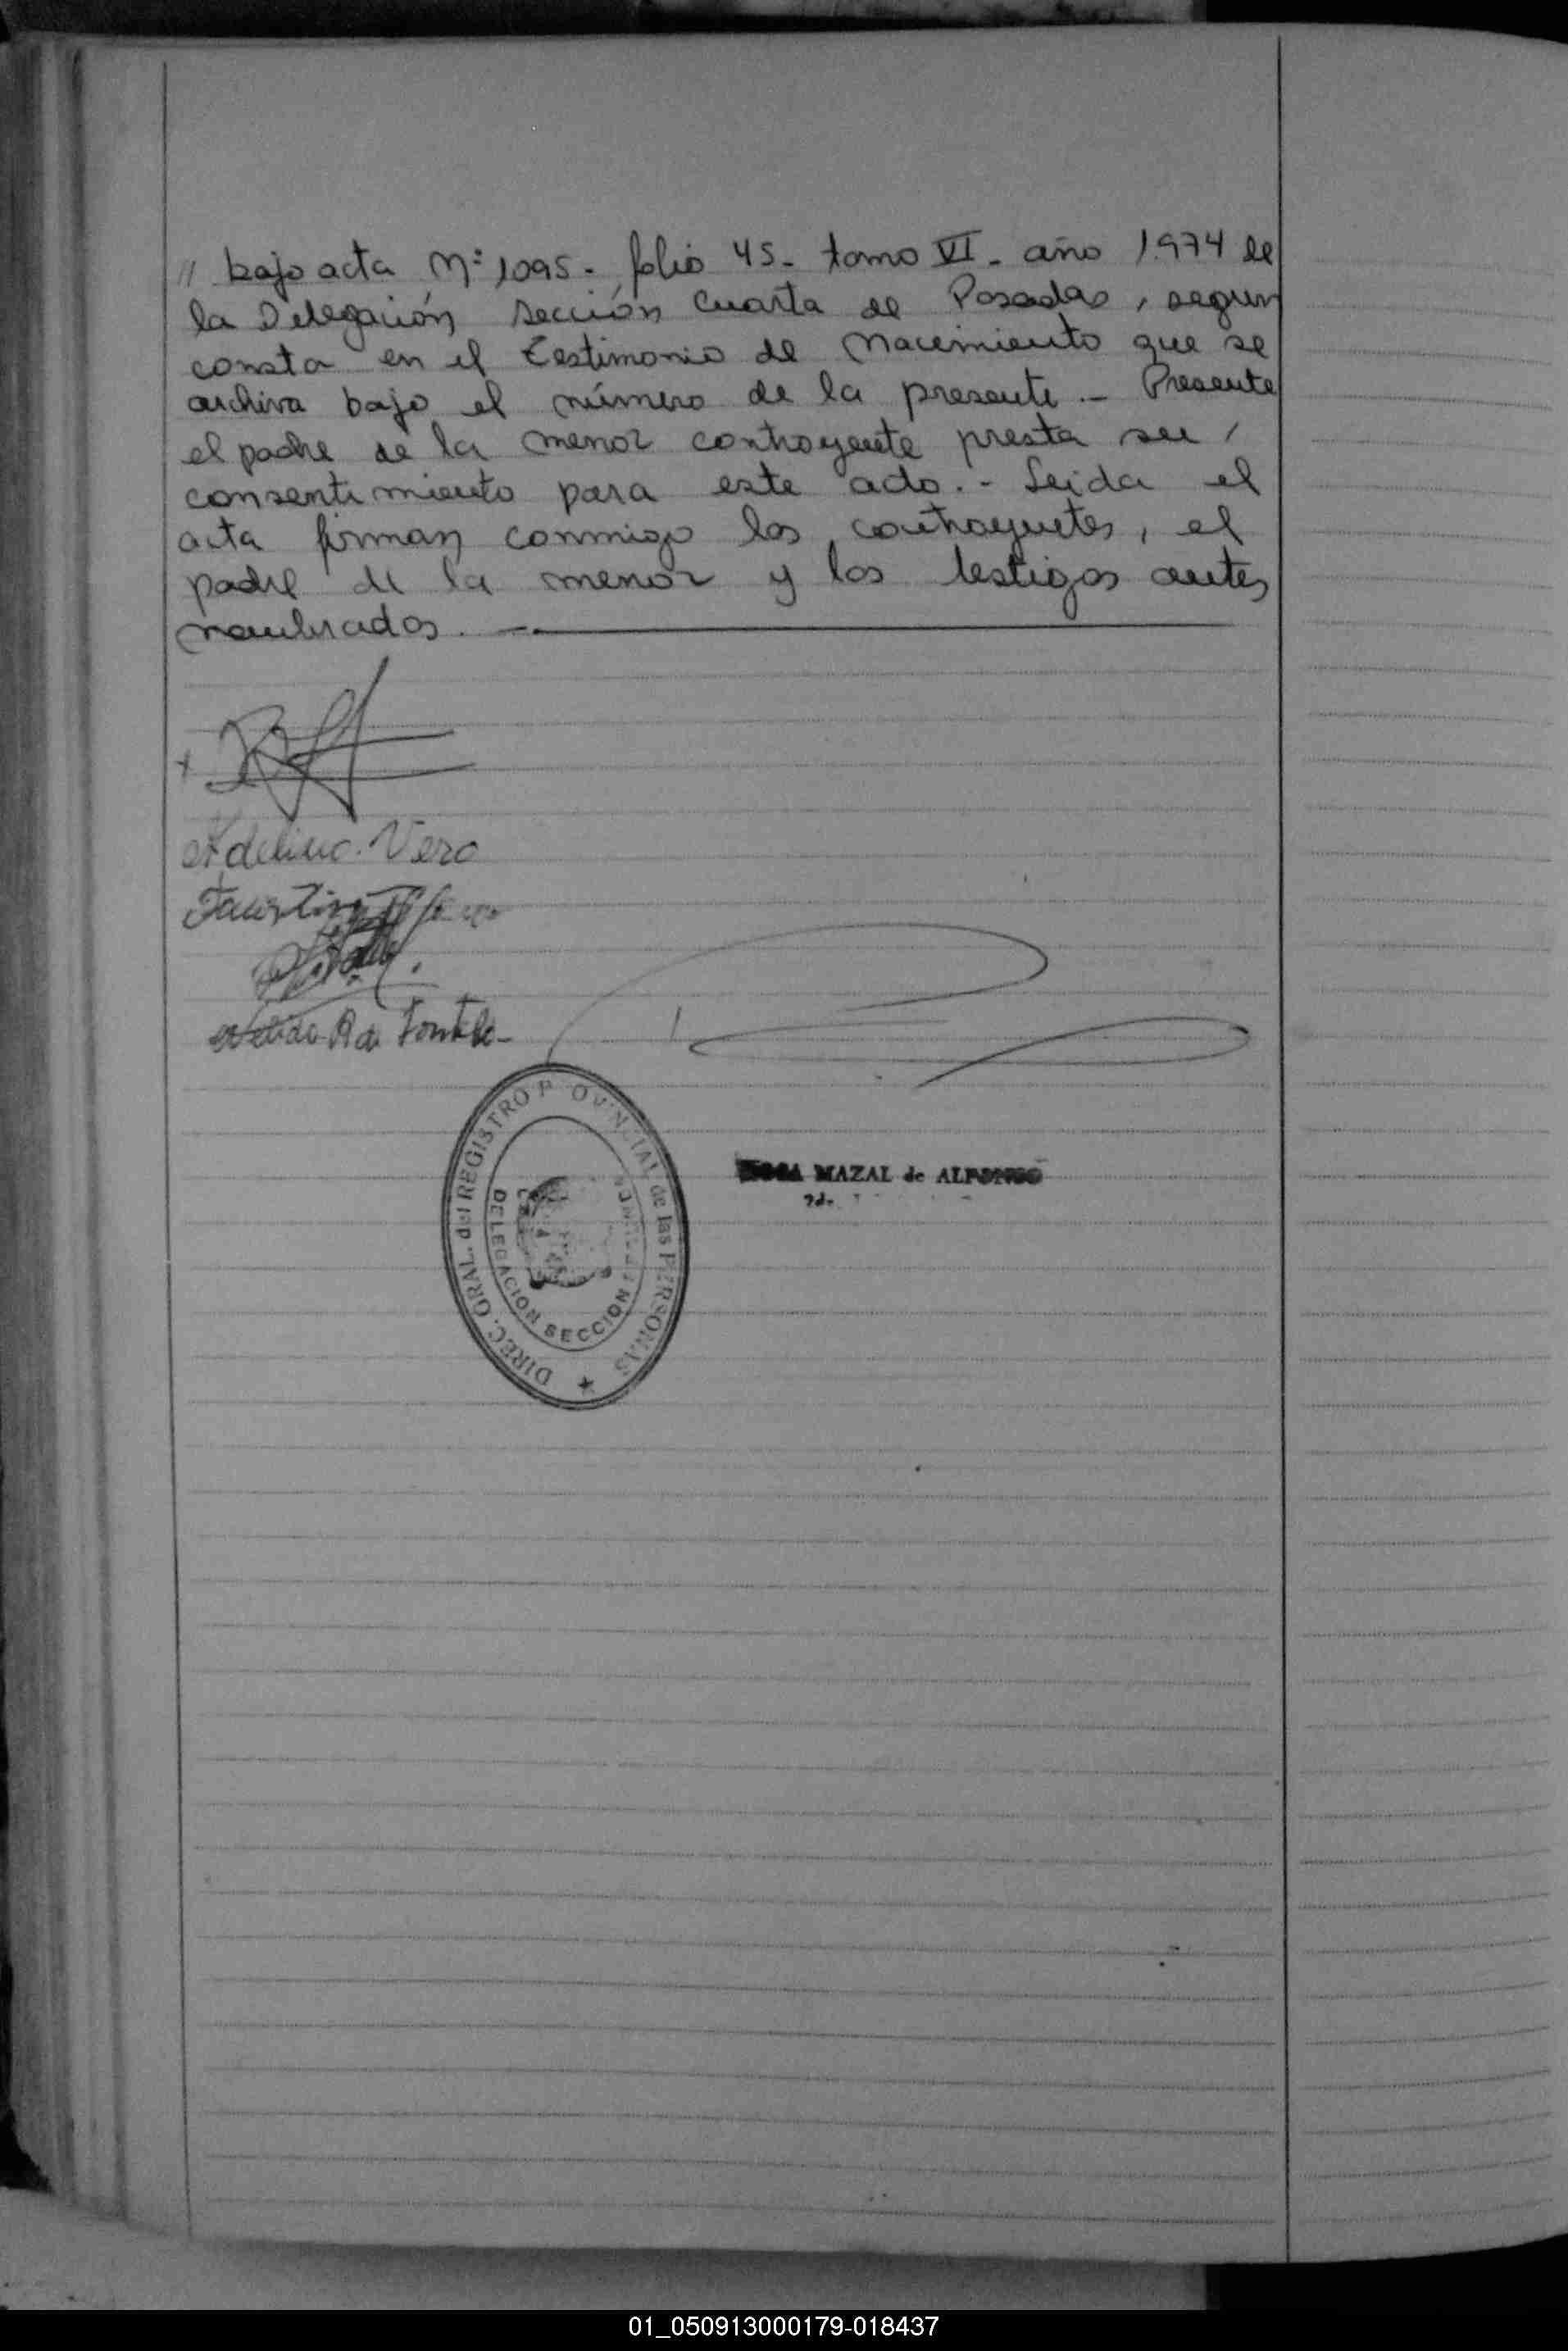 // bajo acta Nº 1095 - folio 45 - tomo VI - año 1.974 de
la Delegación Sección Cuarta de Posadas, segun
consta en el testimonio de nacimiento que se
archiva bajo el número de la presente.- Presente
el padre de la menor contrayente presta su /
consentimiento para este acto.- Leida el
acta firman conmigo los contrayentes, el
padre de la menor y los testigos antes
nombrados. -.
Vero
Faustino
de
DIREC. GRAL. del REGISTRO PROVINCIAL de las PERSONAS
DELEGACION SECCION
MAZAL de ALFONSO
01_050913000179-018437